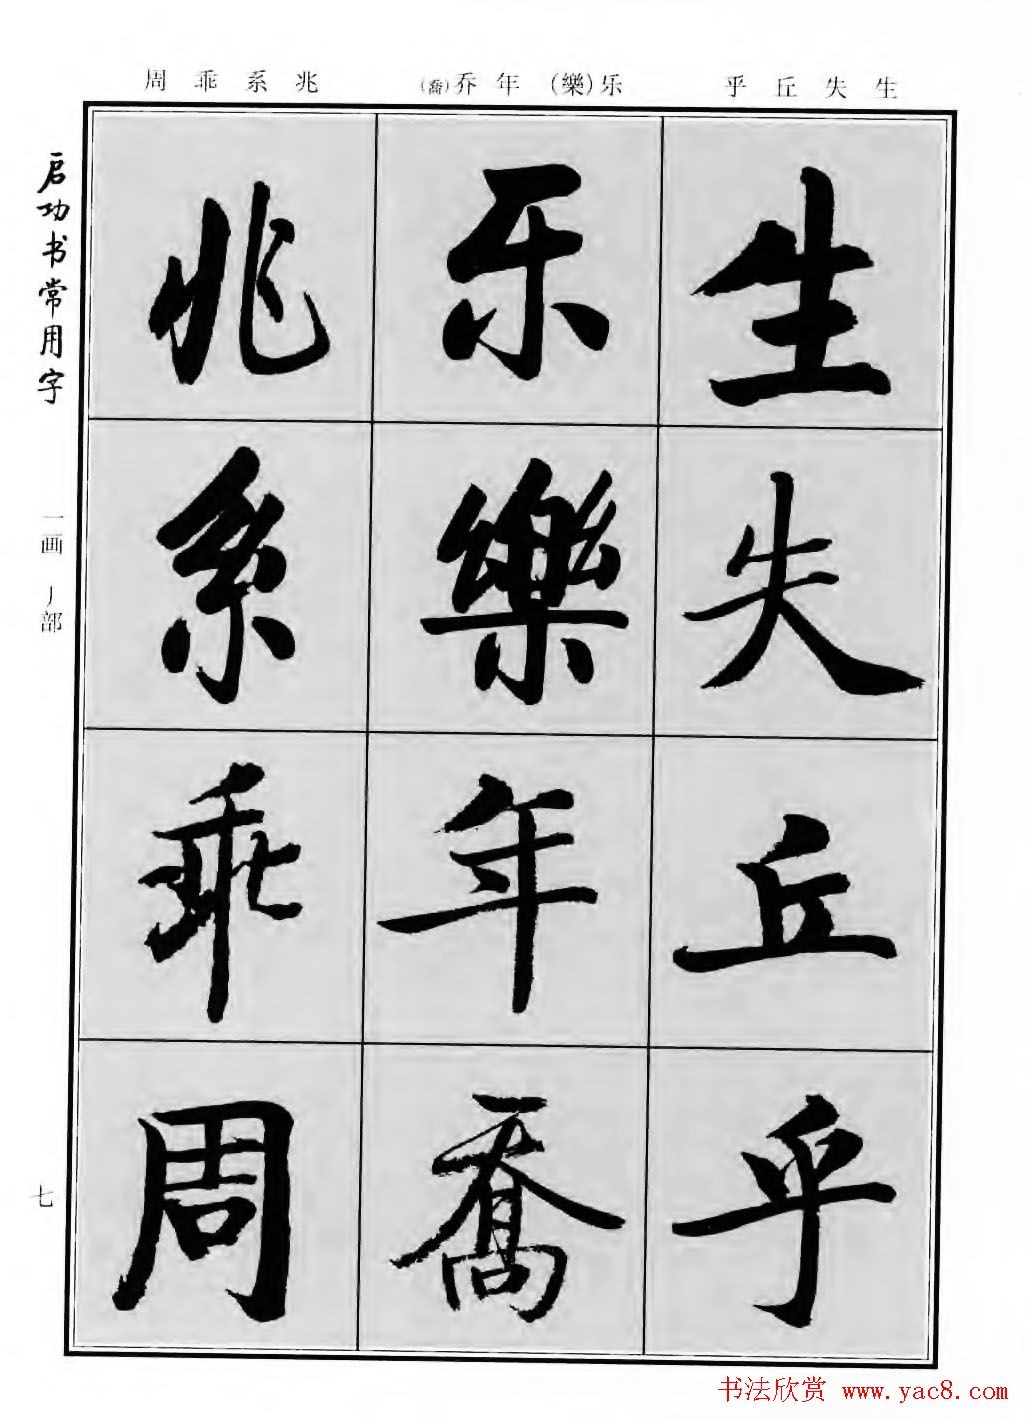 周乖系兆 (喬)乔年 (樂)乐 乎丘失生
启功书常用字
一画 丿部
七
生失丘乎
乐樂年喬
兆系乖周
书法欣赏 www.yac8.com